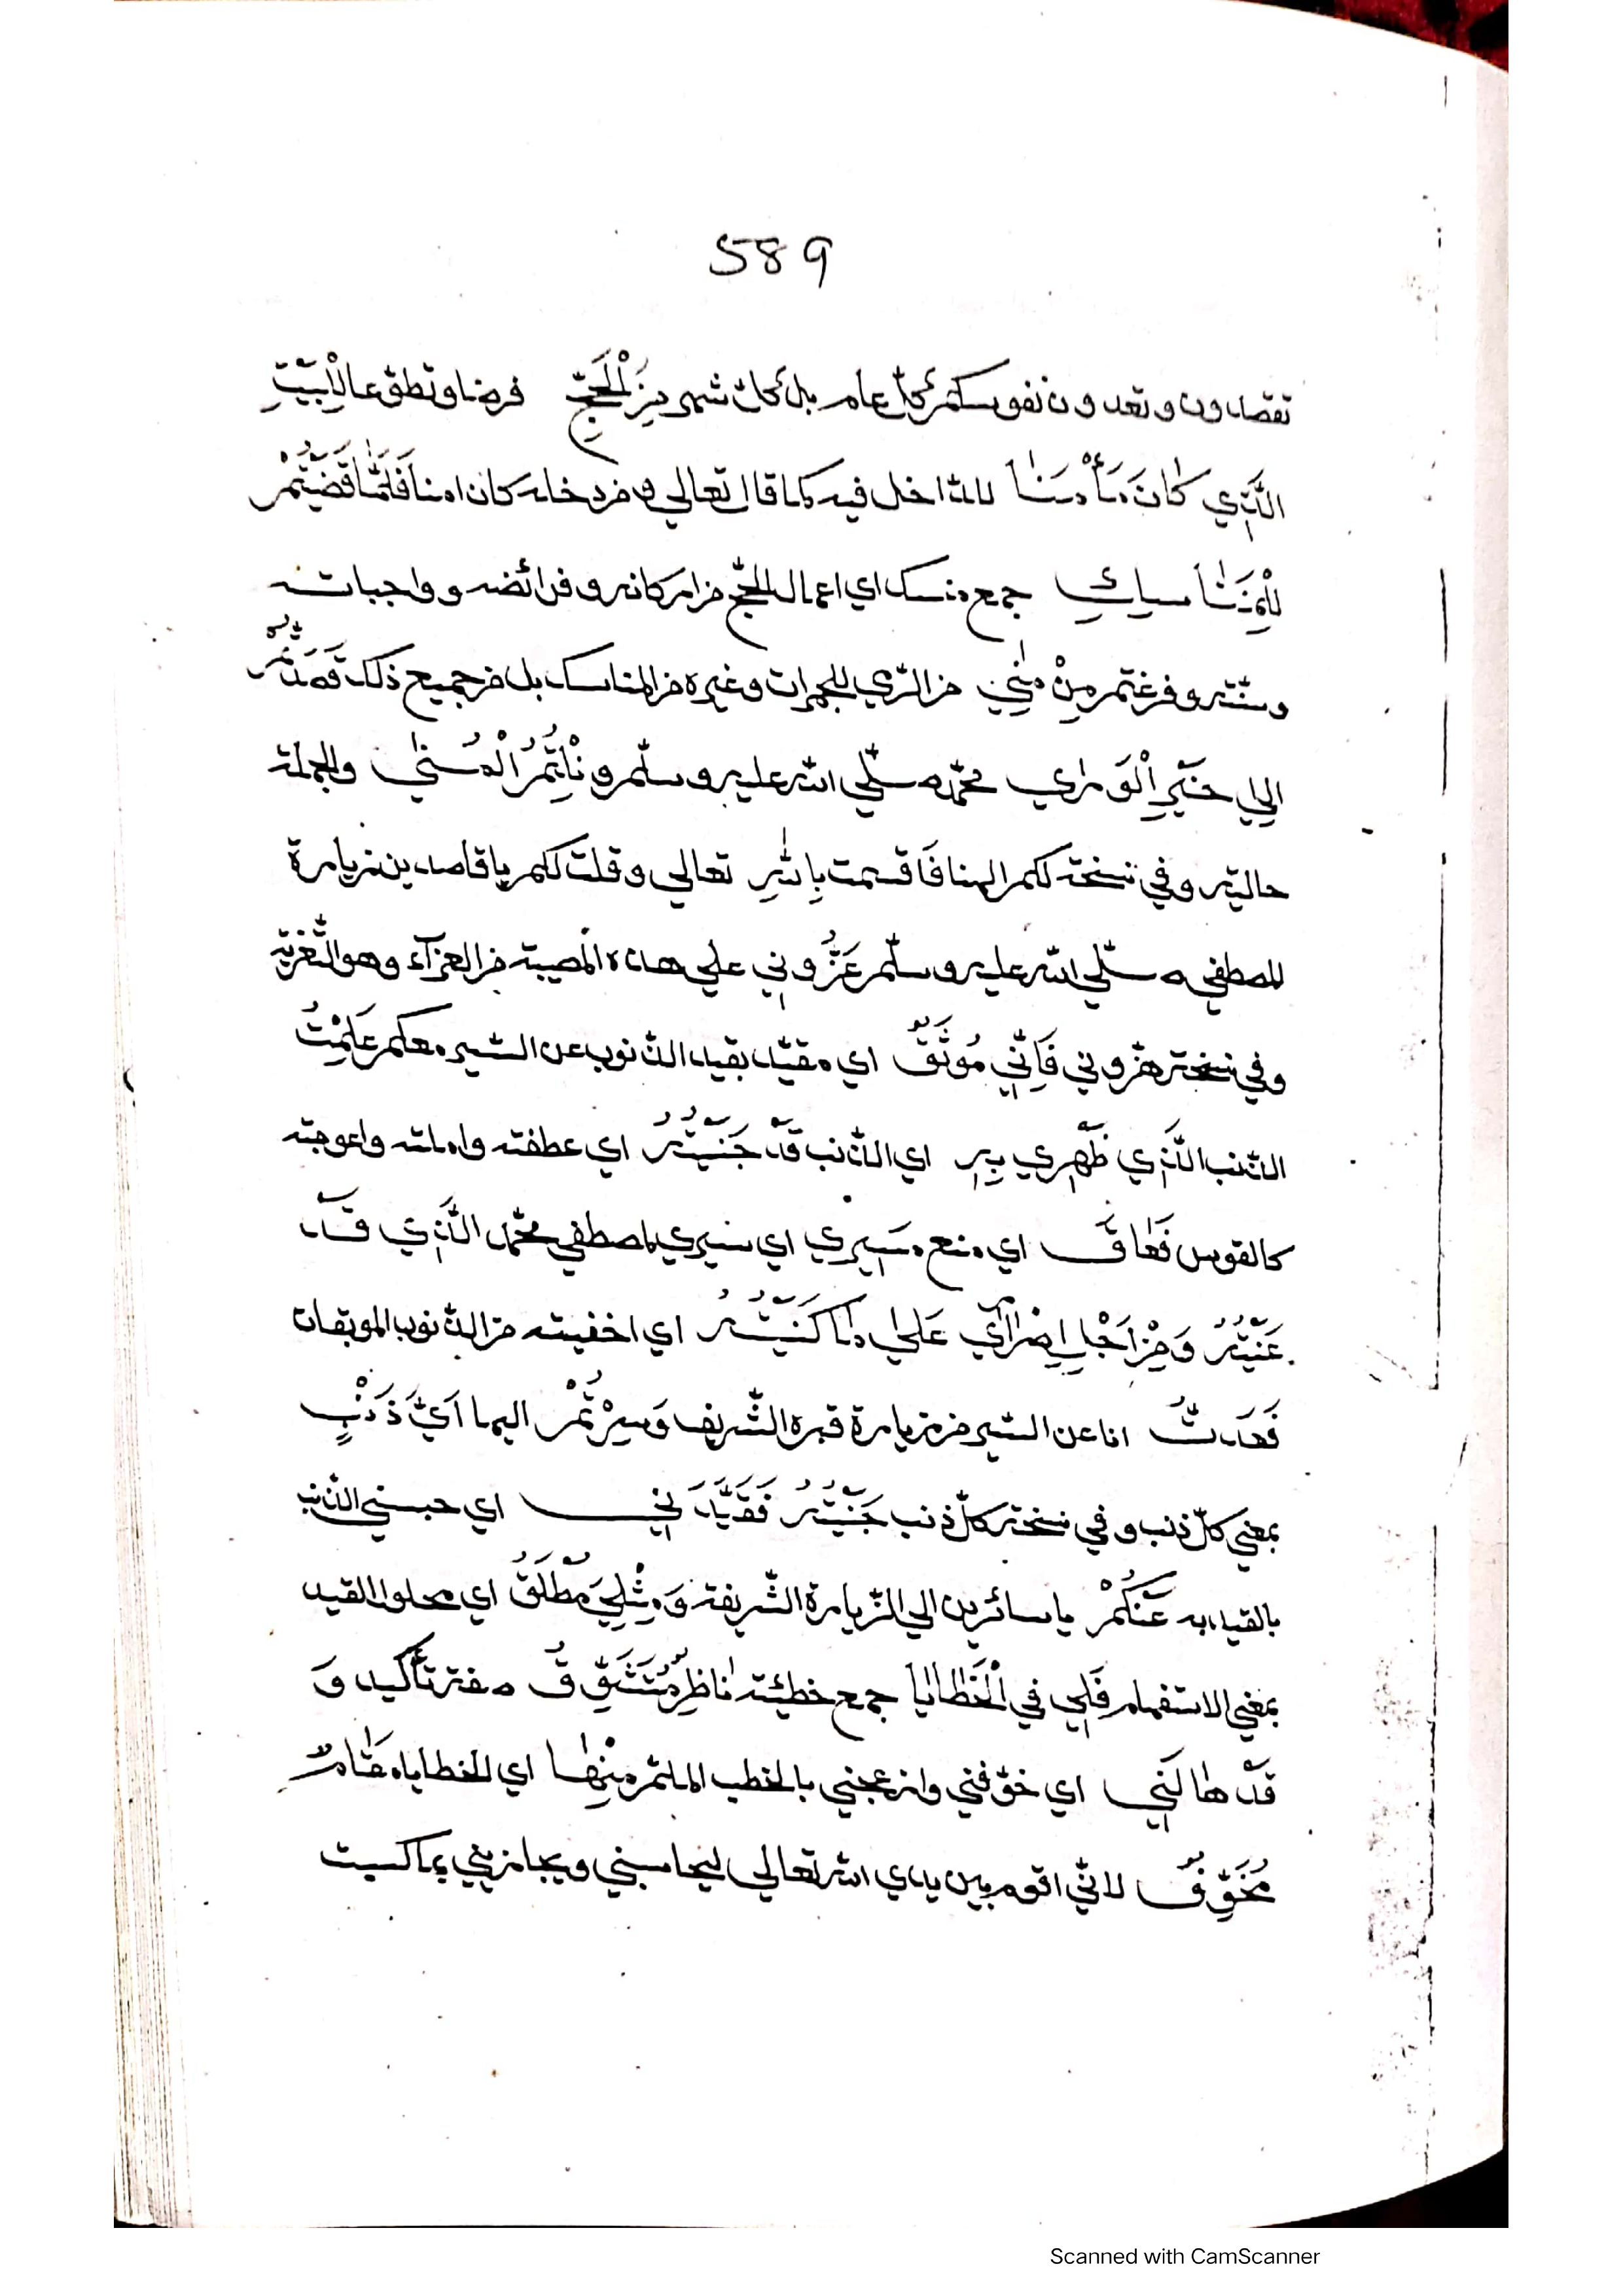 589
تقصدون وتعدون نفوسكم كلّ عام بل كلّ شهر مِنَ الْحَجِّ فرضا وتطوّعا لِلْبَيْتِ
الَّذِي كَانَ مَأْمَنًا للدّاخل فيه كما قال تعالي ومن دخله كان امنا فَلَمَّا قَضَيْتُمْ
لِلْمَنَاسِكِ جمع منسك اي اعمال الحجّ من اركانه وفرائضه وواجباته
وسننه وفرغتم مِنْ مِنًي من الرّمي للجمرات وغيره من المناسك بل من جميع ذلك قَصَدتُّمْ
اِلَي خَيْرِ الْوَرَي محمّد صلّي الله عليه وسلّم وَنِلْتُمُ الْمُنَي والجملة
حاليّه وفي نسخة لكم الهنا فَاَقسمت بِاللّٰهِ تعالي وقلت لكم يا قاصدين زيارة
المصطفي صلّي الله عليه وسلّم عَزُّونِي علي هذه المصيبة من العزآء وهو التّعزية
وفي نسخة هزّوني فَاِنِّي مُوثَقٌ اي مقيّد بقيد الذّنوب عن السّير معكم عَلِمْتُ
الذّنب الَّذِي ظَهْرِي بِهِ اي الذّنب قَدْ حَنَيْتُهُ اي عطفته واملته واعوجته
كالقوس فَعَاقَ اي منع مَسِيرِي اي سيري لمصطفي محمّد الَّذِي قَدْ
عَنَيْتُهُ وَمِنْ اَجْلِ اِصْرَارِي عَلَي مَا كَنَيْتُهُ اي اخفيته من الذّنوب الموبقات
قَعَدتُّ انا عن السّير من زيارة قبره الشّريف وَسِرْتُمْ اليها اَيَّ ذَنْبٍ
بمعني كلّ ذنب وفي نسخة كلّ ذنب جَنَيْتُهُ فَقَيَّدَنِي اي حبسني الذّنب
بالقيد به عَنْكُمْ يا سائرين الي الزّيارة الشّريفة وَمِثْلِيَ مُطْلَقُ اي محلول القيد
بمعني الاستفهام فَلِي فِي الْخَطَايَا جمع خطيئة نَاظِرٌ مُتَشَوِّقٌ صفة تأكيد وَ
قَدْ هَالَنِي اي خوّفني وازعجني بالخطب الملمّ مِنْهَا اي الخطايا مَقَامٌ
مُخَوِّفٌ لانّي اقوم بين يدي الله تعالي ليحاسبني ويجازيني بما كسبت
Scanned with CamScanner